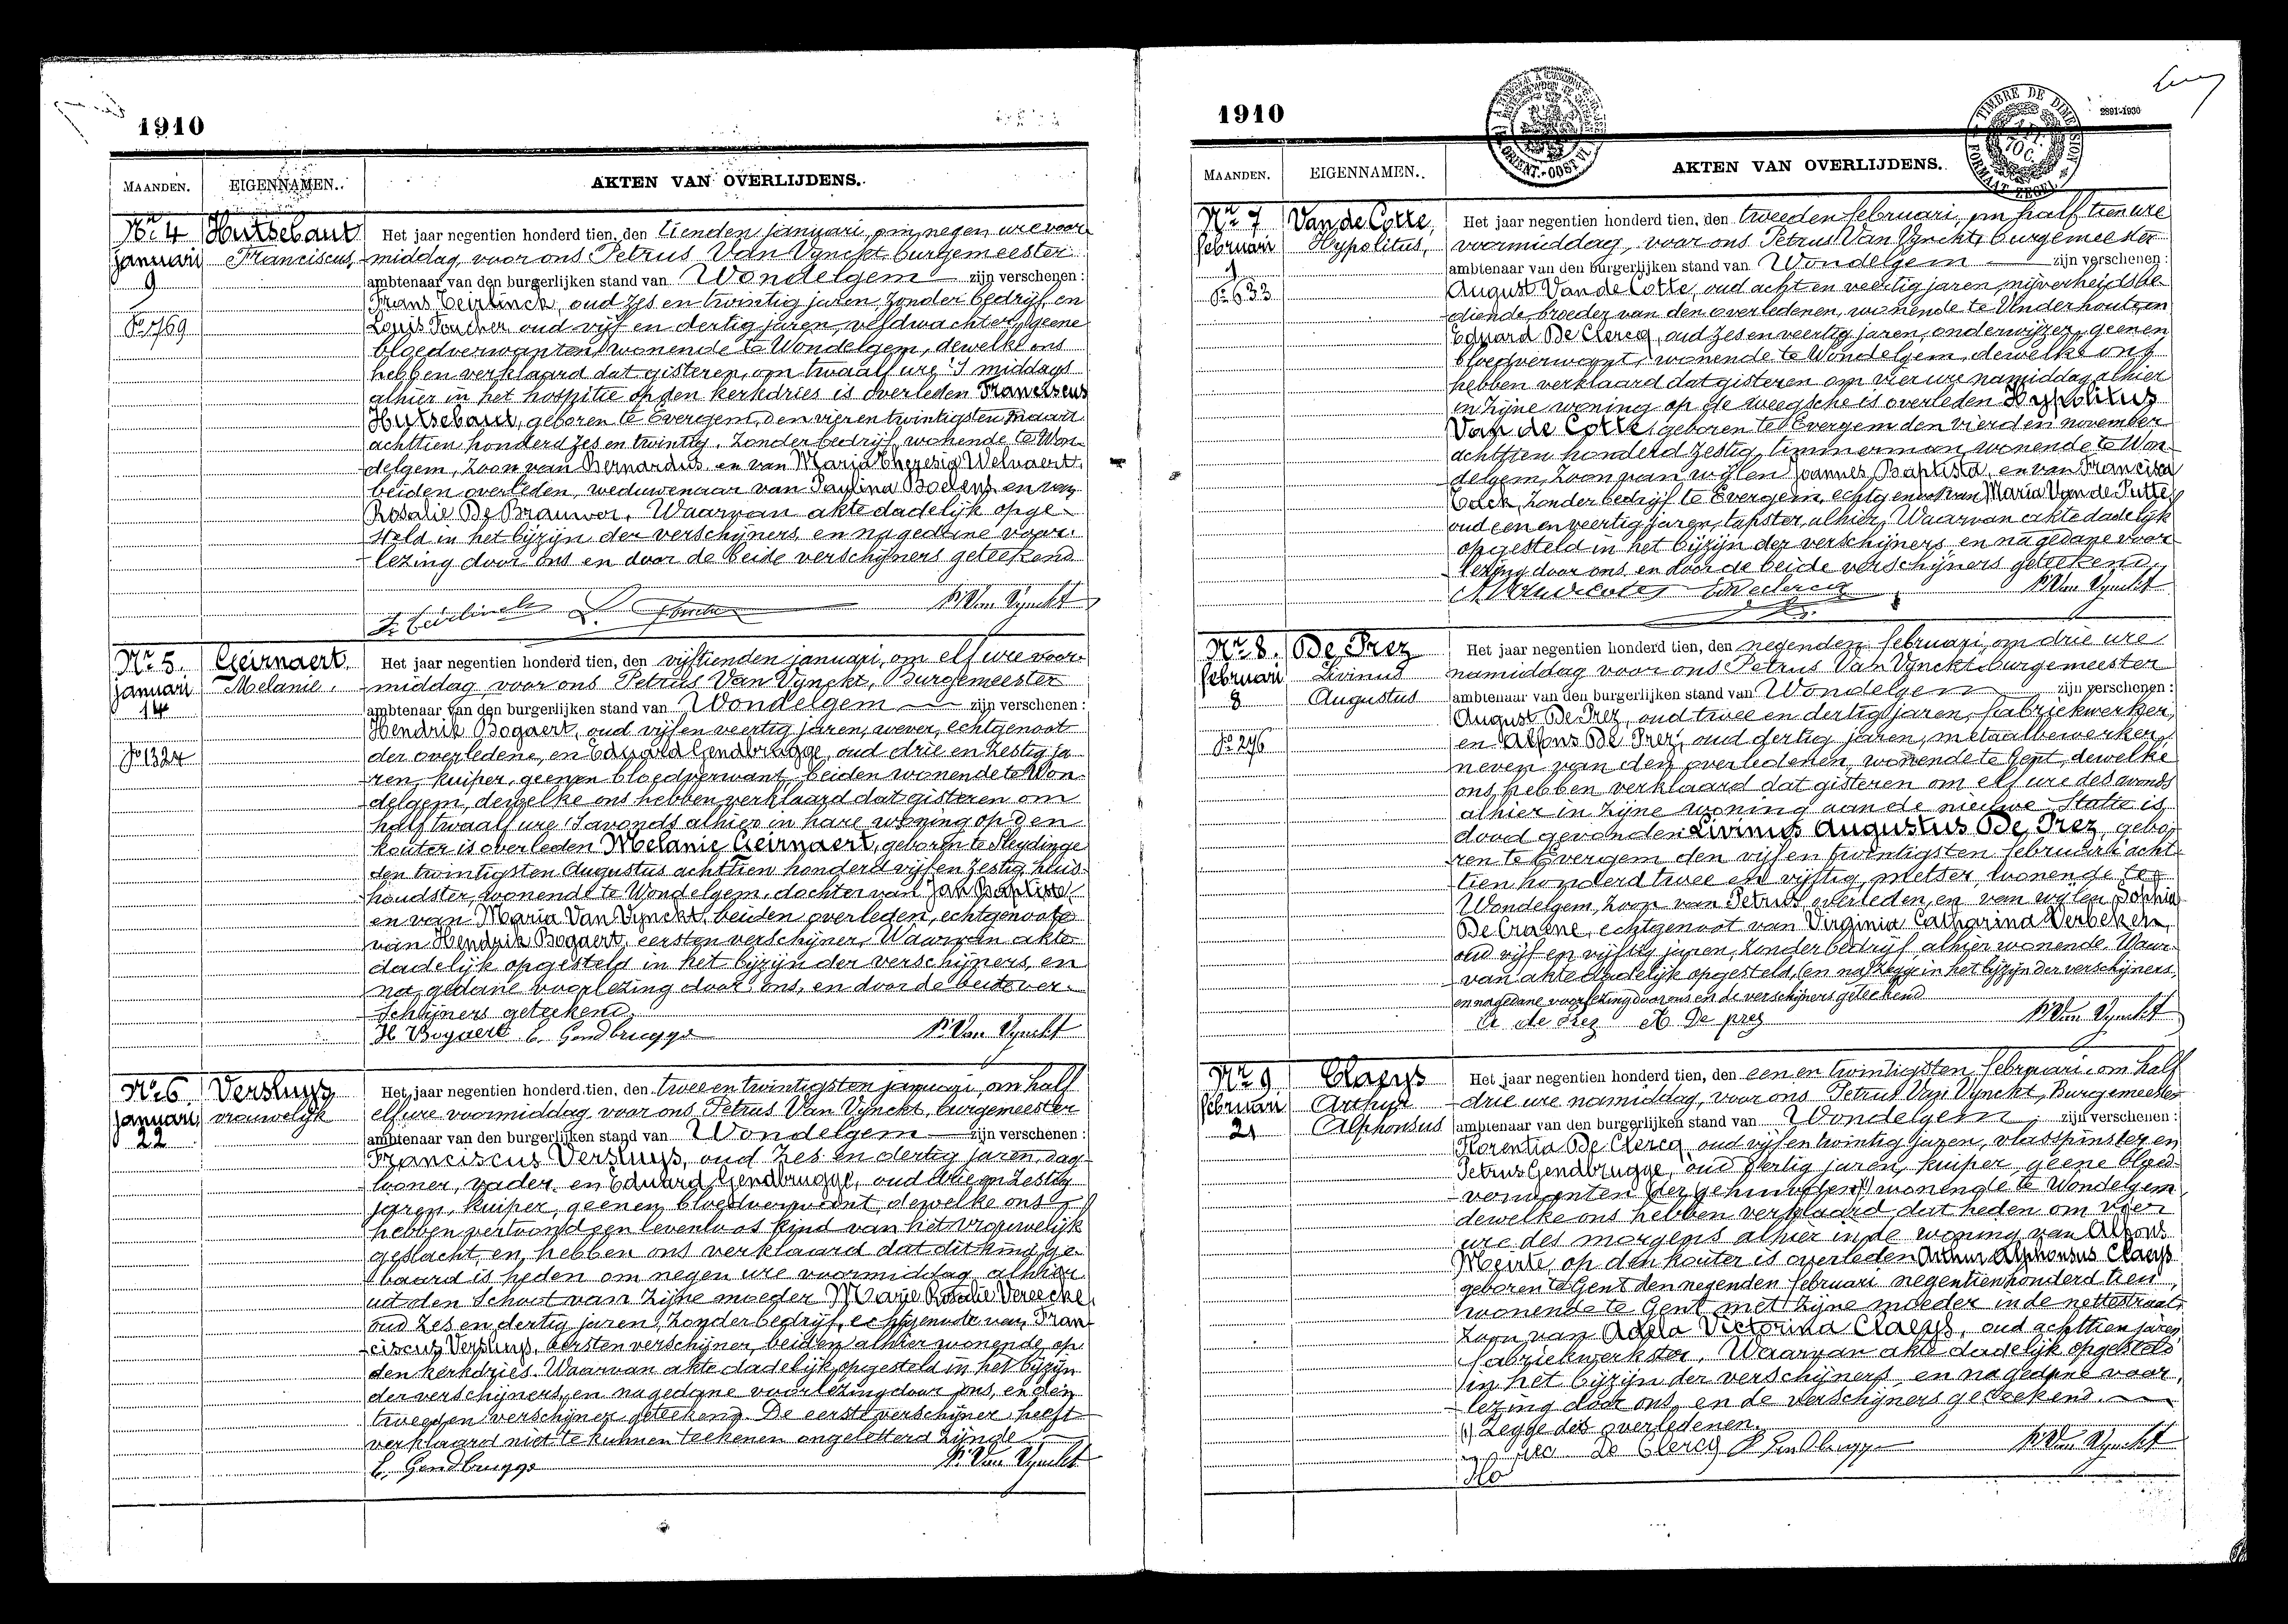 1910
MAANDEN.
EIGENNAMEN.
AKTEN VAN OVERLIJDENS.
Nr 4
Januari
9
Nº 1769
Hutsebaut
Franciscus,
Het jaar negentien honderd tien, den tienden januari, om negen ure voor-
middag, voor ons Petrus Van Vynckt burgemeester
ambtenaar van den burgerlijken stand van Wondelgem zijn verschenen:
Frans Teirlinck, oud zes en twintig jaren zonder bedrijf, en
Louis Foucher oud vijf en dertig jaren, veldwachter, geene
bloedverwanten, wonende te Wondelgem, dewelke ons
hebben verklaard dat gisteren, om twaalf ure 's middags
alhier in het hospitie op den kerkdries is overleden Franciscus
Hutsebaut, geboren te Evergem, den vier en twintigsten maart
achttien honderd zes en twintig, zonder bedrijf, wonende te Won-
delgem, zoon van Bernardus en van Maria Theresia Welvaert,
beiden overleden, weduwenaar van Paulina Boelens en van
Rosalie De Brauwer. Waarvan akte dadelijk opge-
steld in het bijzijn der verschijners, en na gedane voor-
lezing door ons en door de beide verschijners geteekend
Fr Teirlinck L. Foucher P. Van Vynckt
Nr 5.
Januari
14
Nº 1324
Geirnaert,
Melanie.
Het jaar negentien honderd tien, den vijftienden januari, om elf ure voor-
middag, voor ons Petrus Van Vynckt, Burgemeester
ambtenaar van den burgerlijken stand van Wondelgem zijn verschenen:
Hendrik Bogaert, oud vijf en veertig jaren, wever, echtgenoot
der overledene, en Eduard Gendbrugge, oud drie en zestig ja
ren, kuiper, geenen bloedverwant, beiden wonende te Won-
delgem, dewelke ons hebben verklaard dat gisteren om
half twaalf ure 's avonds alhier in hare woning op den
kouter is overleden Melanie Geirnaert, geboren te Sleydinge
den twintigsten Augustus achttien honderd vijf en zestig, huis-
houdster, wonende te Wondelgem, dochter van Jan Baptiste
en van Maria Van Vynckt, beiden overleden, echtgenoote
van Hendrik Bogaert, eersten verschijner. Waarvan akte
dadelijk opgesteld in het bijzijn der verschijners, en
na gedane voorlezing door ons, en door de beide ver-
schijners geteekend.
H Bogaert E. Gendbrugge P. Van Vynckt
Nr 6.
Januari,
22
Versluys
vrouwelijk
Het jaar negentien honderd tien, den twee en twintigsten januari, om half
elf ure voormiddag voor ons Petrus Van Vynckt, burgemeester
ambtenaar van den burgerlijken stand van Wondelgem zijn verschenen:
Franciscus Versluys, oud zes en dertig jaren, dag-
looner, vader, en Eduard Gendbrugge, oud drie en zestig
jaren, kuiper, geenen bloedverwant, dewelke ons
hebben vertoond een levenloos kind van het vrouwelijk
geslacht, en hebben ons verklaard dat dit kind ge-
baard is heden om negen ure voormiddag alhier
uit den schoot van zijne moeder Marie Rosalie Vereecke
oud zes en dertig jaren, zonder bedrijf, echtgenoote van Fran-
ciscus Versluys, eersten verschijner, beiden alhier wonende op
den kerkdries. Waarvan akte dadelijk opgesteld in het bijzijn
der verschijners, en na gedane voorlezing door ons, en den
tweeden verschijner geteekend. De eerste verschijner heeft
verklaard niet te kunnen teekenen ongeletterd zijnde
E. Gendbrugge P. Van Vynckt
1910
TIMBRE DE DIMENSION
FORMAAT ZEGEL
2891-1930
MAANDEN.
EIGENNAMEN.
AKTEN VAN OVERLIJDENS.
Nr 7
februari
1
Nº 633
Van de Cotte,
Hypolitus,
Het jaar negentien honderd tien, den tweeden februari, om half tien ure
voormiddag, voor ons Petrus Van Vynckt, burgemeester
ambtenaar van den burgerlijken stand van Wondelgem zijn verschenen:
August Van de Cotte, oud acht en veertig jaren nijverheidsbe-
diende, broeder van den overledenen, wonende te Onderhout, en
Eduard De Clercq, oud zes en veertig jaren, onderwijzer, geenen
bloedverwant, wonende te Wondelgem, dewelke ons
hebben verklaard dat gisteren om vier ure namiddag alhier
in zijne woning op de weegsche is overleden Hypolitus
Van de Cotte, geboren te Evergem den vierden november
achttien honderd zestig, timmerman, wonende te Won-
delgem, zoon van wijlen Joannes Baptista, en van Francisca
Cock, zonder bedrijf te Evergem, echtgenoot van Maria Van de Putte,
oud een en veertig jaren, tapster, alhier. Waarvan akte dadelijk
opgesteld in het bijzijn der verschijners, en na gedane voor-
lezing door ons en door de beide verschijners geteekend.
A Vandecotte E Declercq P. Van Vynckt
Nr 8.
februari
8
Nº 276
De Prez
Livinus
Augustus
Het jaar negentien honderd tien, den negenden februari, om drie ure
namiddag voor ons Petrus Van Vynckt burgemeester
ambtenaar van den burgerlijken stand van Wondelgem zijn verschenen:
August De Prez, oud twee en dertig jaren, fabriekwerker,
en Alfons De Prez, oud dertig jaren, metaalbewerker,
neven van den overledenen, wonende te Gent, dewelke
ons hebben verklaard dat gisteren om elf ure des avonds
alhier in zijne woning aan de nieuwe Statie is
dood gevonden Livinus Augustus De Prez, gebo-
ren te Evergem den vijf en twintigsten februari acht-
tien honderd twee en vijftig, metser, wonende te
Wondelgem, zoon van Petrus overleden, en van wijlen Sophia
De Craene, echtgenoot van Virginia Catharina Verbeken,
oud vijf en vijftig jaren, zonder bedrijf, alhier wonende. Waar-
van akte dadelijk opgesteld, (en na) zegge in het bijzijn der verschijners,
en na gedane voorlezing door ons en de verschijners geteekend
A de Prez A De prez P. Van Vynckt
Nr 9
februari
21
Claeys
Arthur
Alphonsus
Het jaar negentien honderd tien, den een en twintigsten februari, om half
drie ure namiddag, voor ons Petrus Van Vynckt, Burgemeester
ambtenaar van den burgerlijken stand van Wondelgem, zijn verschenen:
Florentia De Clercq oud vijf en twintig jaren, vlasspinster en
Petrus Gendbrugge, oud dertig jaren, kuiper, geene bloed-
verwanten (der gehuwden)(1) wonende te Wondelgem,
dewelke ons hebben verklaard dat heden om vier
ure des morgens alhier in de woning van Alfons
Meirte, op den kouter is overleden Arthur Alphonsus Claeys
geboren te Gent den negenden februari negentien honderd tien,
wonende te Gent met zijne moeder in de nettestraat,
zoon van Adela Victorina Claeys, oud achttien jaren,
fabriekwerkster. Waarvan akte dadelijk opgesteld
in het bijzijn der verschijners, en na gedane voor-
lezing door ons, en de verschijners geteekend.
(1) Zegge des overledenen.
De Clercq P Gendbrugge P. Van Vynckt